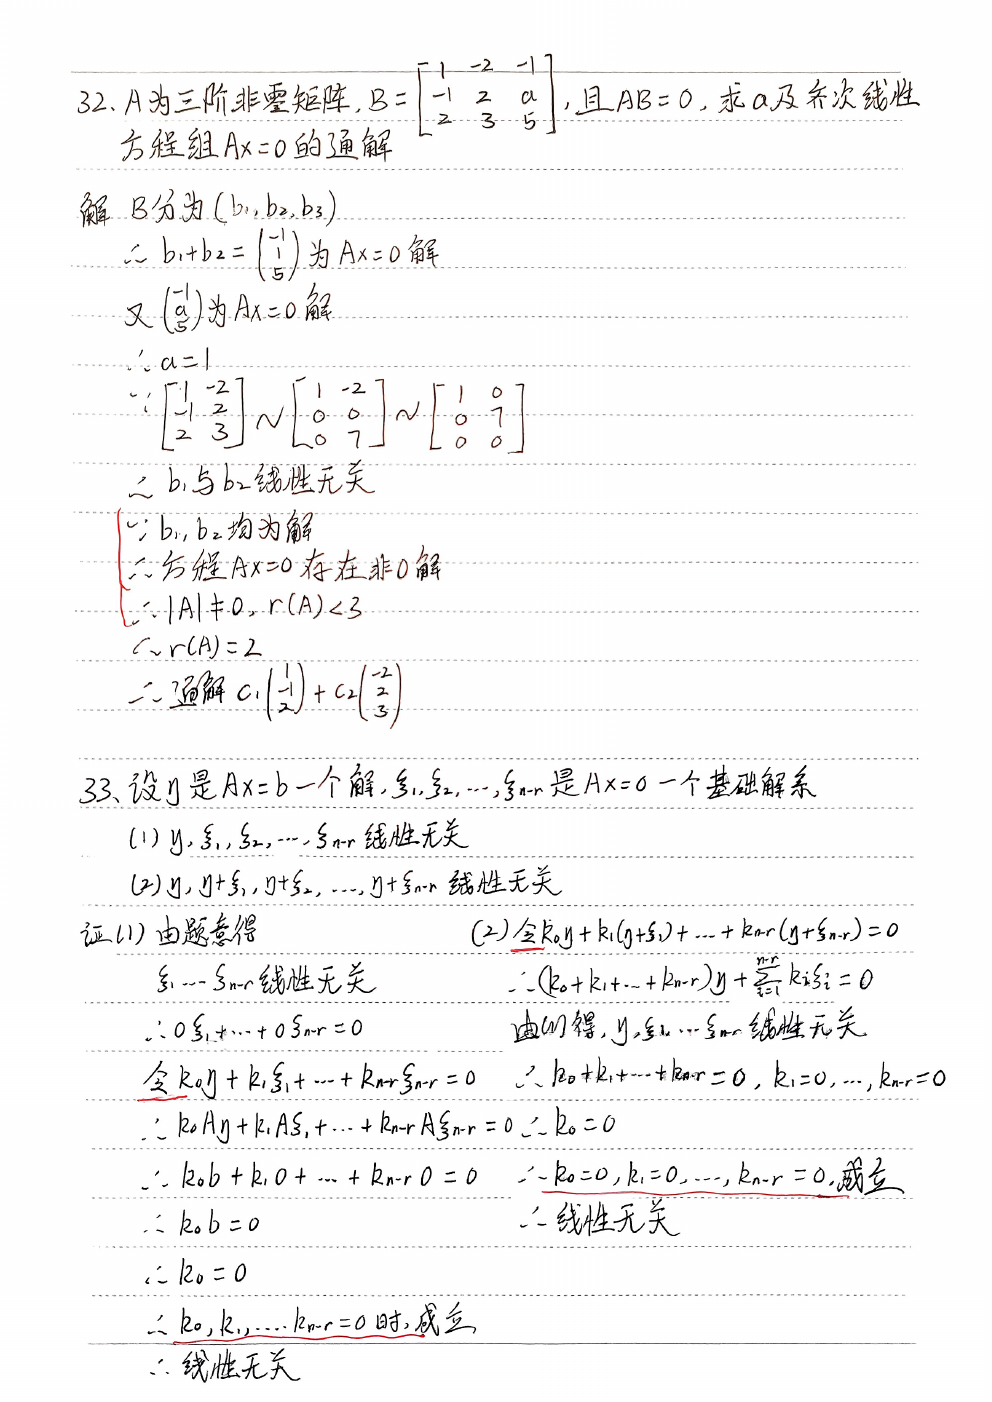 32、A为三阶非零矩阵,B=[1 -2 -1; -1 2 a; 2 3 5],且AB=0,求a及齐次线性
方程组Ax=0的通解
解 B分为(b1,b2,b3)
∴ b1+b2=(-1 1 5)为Ax=0解
又(-1 a 5)为Ax=0解
∴ a=1
∵ [1 -2; -1 2; 2 3] ~ [1 -2; 0 0; 0 7] ~ [1 0; 0 7; 0 0]
∴ b1与b2线性无关
∵ b1,b2均为解
∴ 方程Ax=0存在非0解
∴ |A|≠0, r(A)<3
∴ r(A)=2
∴ 通解 C1(1 -1 2)+C2(-2 2 3)
33、设η是Ax=b一个解,ξ1,ξ2,…,ξn-r是Ax=0一个基础解系
(1) η,ξ1,ξ2,…,ξn-r线性无关
(2) η,η+ξ1,η+ξ2,…,η+ξn-r 线性无关
证(1) 由题意得
ξ1…ξn-r线性无关
∴ 0ξ1+…+0ξn-r=0
令k0η+k1ξ1+…+kn-rξn-r=0
∴ k0Aη+k1Aξ1+…+kn-rAξn-r=0
∴ k0b+k10+…+kn-r0=0
∴ k0b=0
∴ k0=0
∴ k0,k1,….kn-r=0时,成立
∴ 线性无关
(2) 令k0η+k1(η+ξ1)+…+kn-r(η+ξn-r)=0
∴ (k0+k1+…+kn-r)η+∑_{i=1}^{n-r}kiξi=0
由(1)得,η,ξ1,…ξn-r 线性无关
∴ k0+k1+…+kn-r=0,k1=0,…,kn-r=0
∴ k0=0
∴ k0=0,k1=0,…,kn-r=0,成立
∴ 线性无关